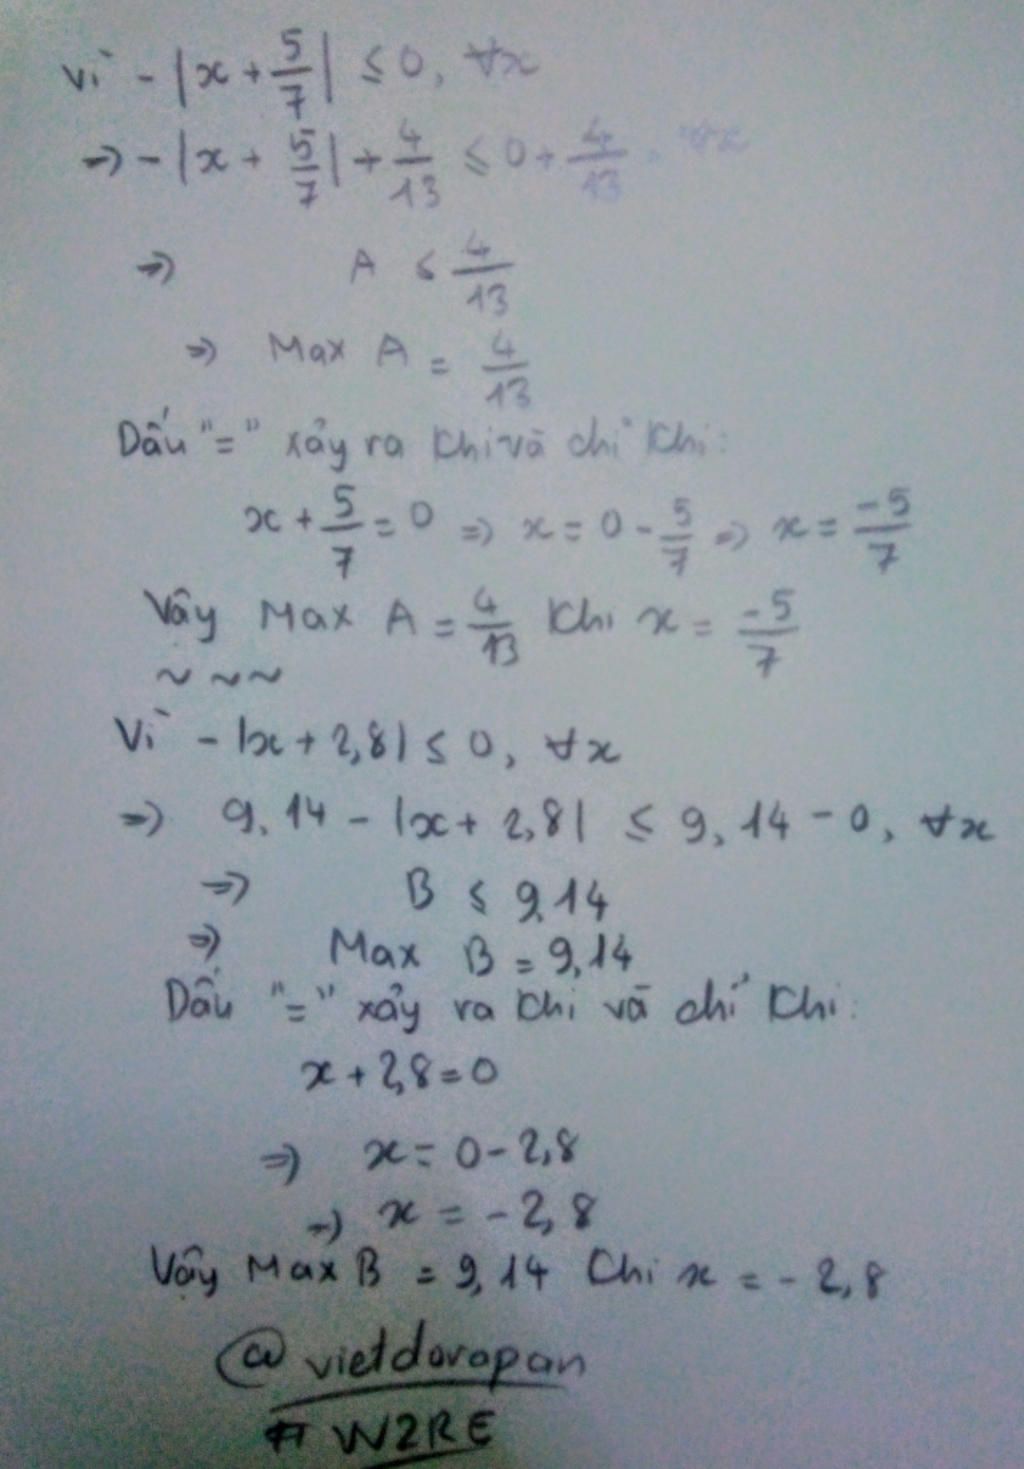 Vì - |x + 5/7| ≤ 0, ∀x
⇒ - |x + 5/7| + 4/13 ≤ 0 + 4/13, ∀x
⇒ A ≤ 4/13
⇒ Max A = 4/13
Dấu "=" xảy ra khi và chỉ khi:
x + 5/7 = 0 ⇒ x = 0 - 5/7 ⇒ x = -5/7
Vậy Max A = 4/13 khi x = -5/7
~ ~ ~
Vì - |x + 2,8| ≤ 0, ∀x
⇒ 9,14 - |x + 2,8| ≤ 9,14 - 0, ∀x
⇒ B ≤ 9,14
⇒ Max B = 9,14
Dấu "=" xảy ra khi và chỉ khi:
x + 2,8 = 0
⇒ x = 0 - 2,8
⇒ x = - 2,8
Vậy Max B = 9,14 khi x = - 2,8
@vietdorapan
# W2RE